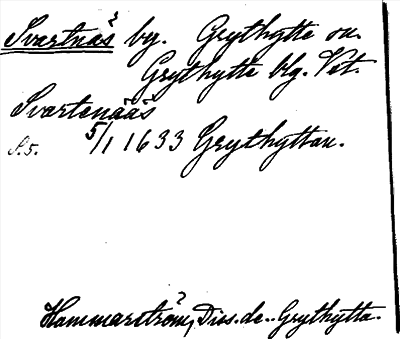 Svartnäs by. Grythytte sn.
Grythytte blg. Vst.
Svartenääs
S. 5. 5/1 1633 Grythyttan.
Hammarström, Dies. de.. Grythytta.